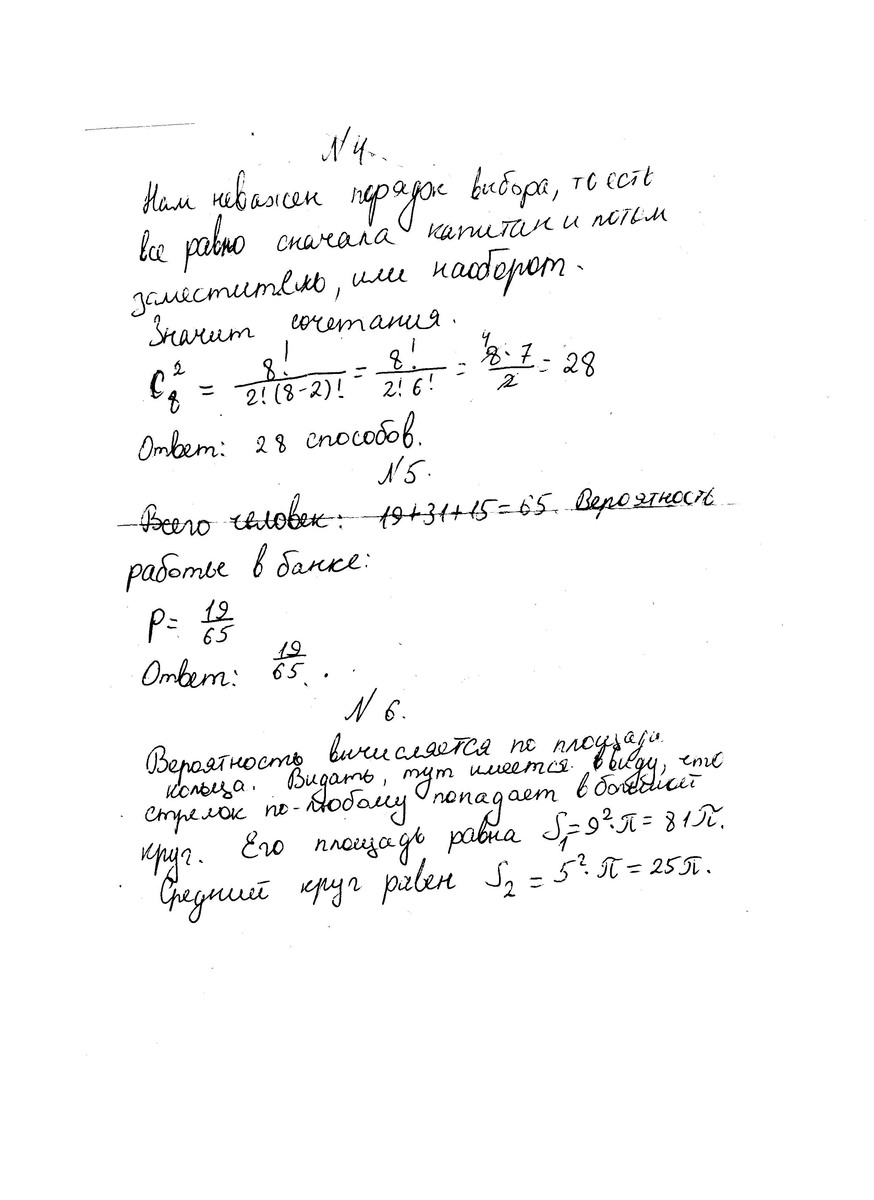 N 4.
Нам неважен порядок выбора, то есть
все равно сначала капитан и потом
заместитель, или наоборот.
Значит сочетания.
C₈² = 8!/(2!(8-2)!) = 8!/(2! 6!) = 8·7/2 = 28
Ответ: 28 способов.
N 5.
Всего человек: 19+31+15=65. Вероятность
работы в банке:
P= 19/65
Ответ: 19/65.
N 6.
Вероятность вычисляется по площади
кольца. Видать, тут имеется ввиду, что
стрелок по-любому попадает в больший
круг. Его площадь равна S₁=9²·π=81π.
Средний круг равен S₂=5²·π=25π.